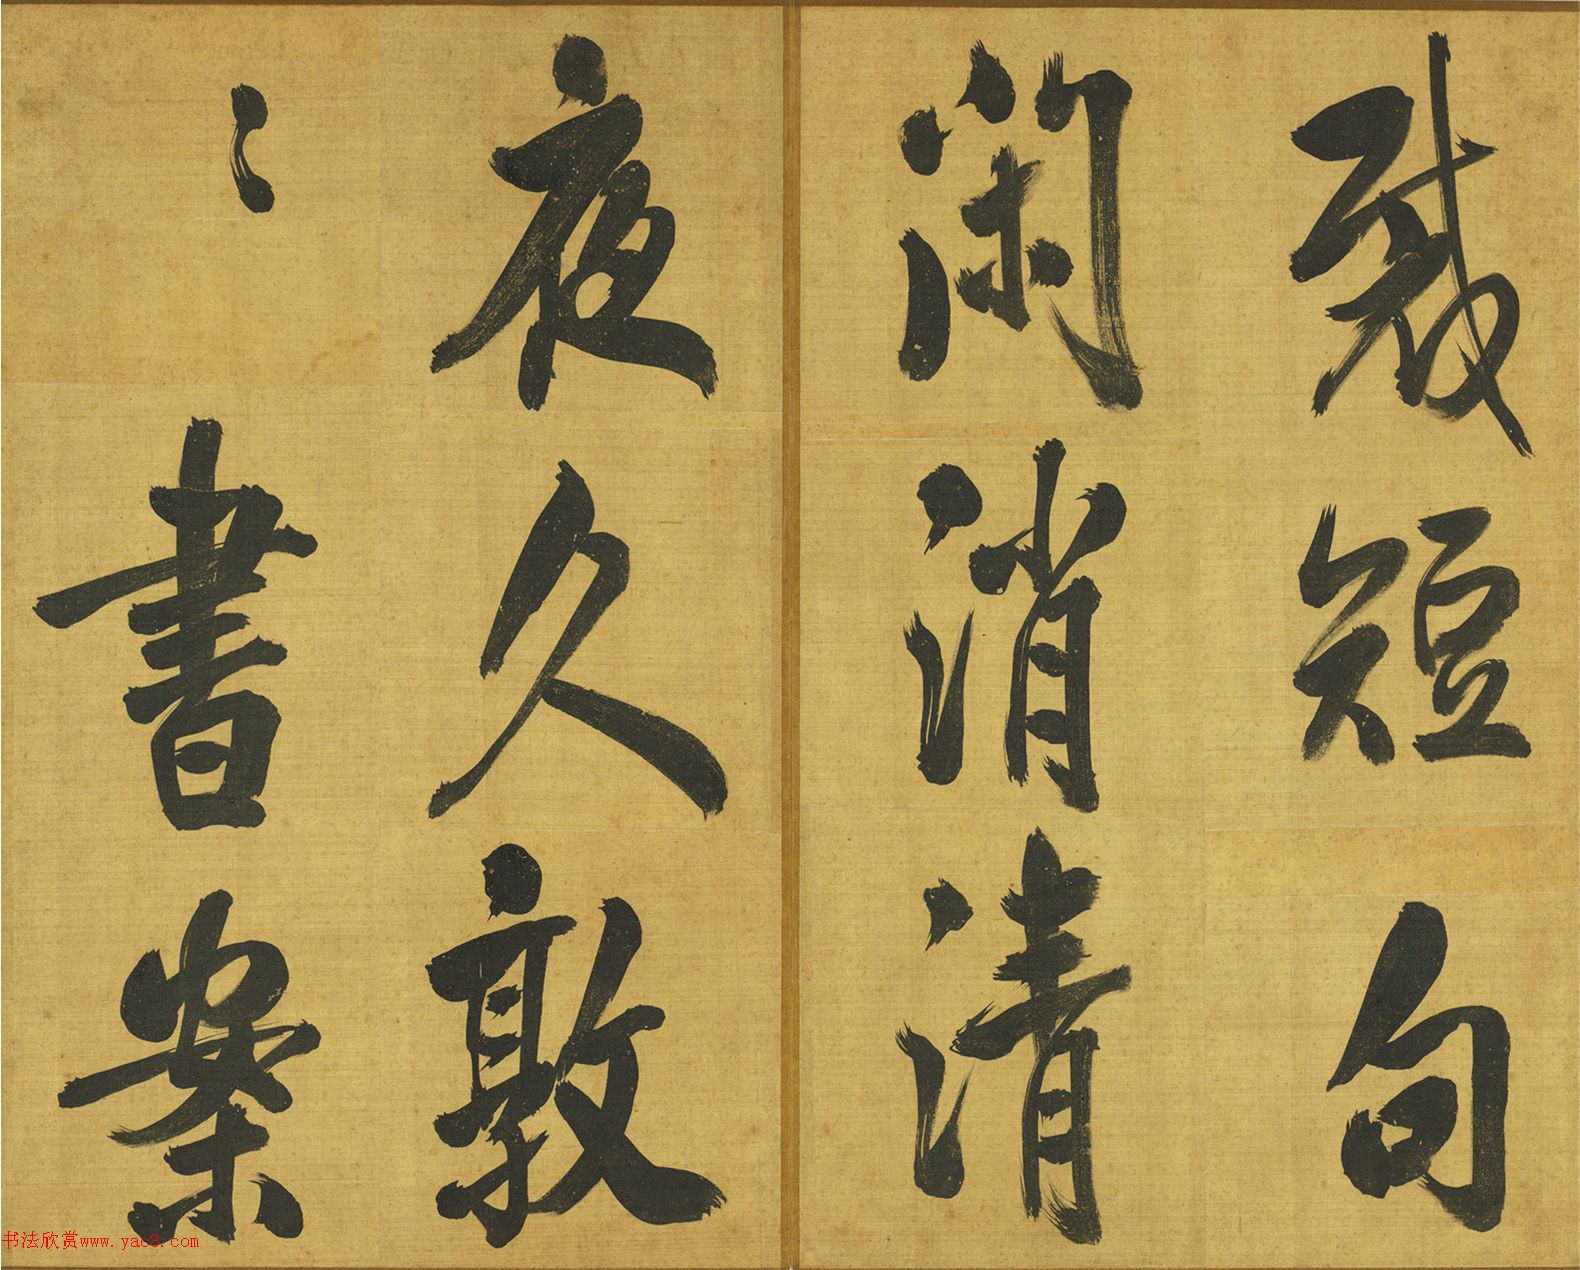 裁短句
閑消清
夜久敦
〻書案
书法欣赏www.yac8.com